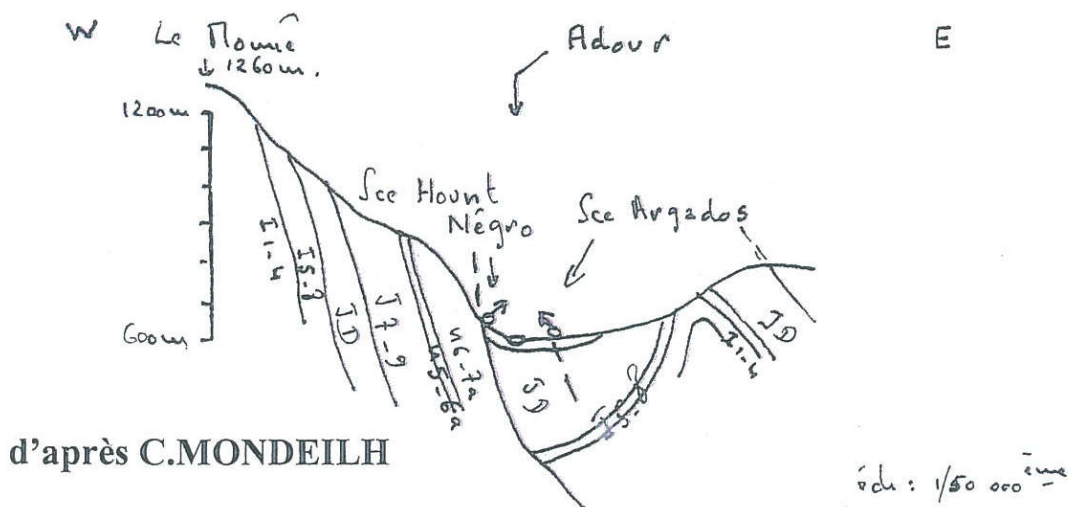 W Le Monné Adour E
1260m.
1200m
Sce Hount
Négro
Sce Argados
600m
I1-4
I5-8
JD
J7-9
n5-6a
n6-7a
JD
I1-4
JD
d'après C.MONDEILH
éch : 1/50 000 ème